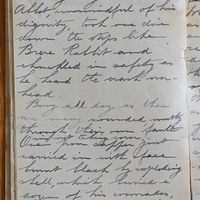 Abbot, unmindful of his
dignity, took one dive
down the steps like
Brere Rabbit and
chuckled in safety as
he heard the crash over-
head.
Busy all day, as there
are many wounded mostly
through their own fault
One poor sapper just
carried in with face
burnt black by exploding
shell, which buried a
dozen of his comrades,